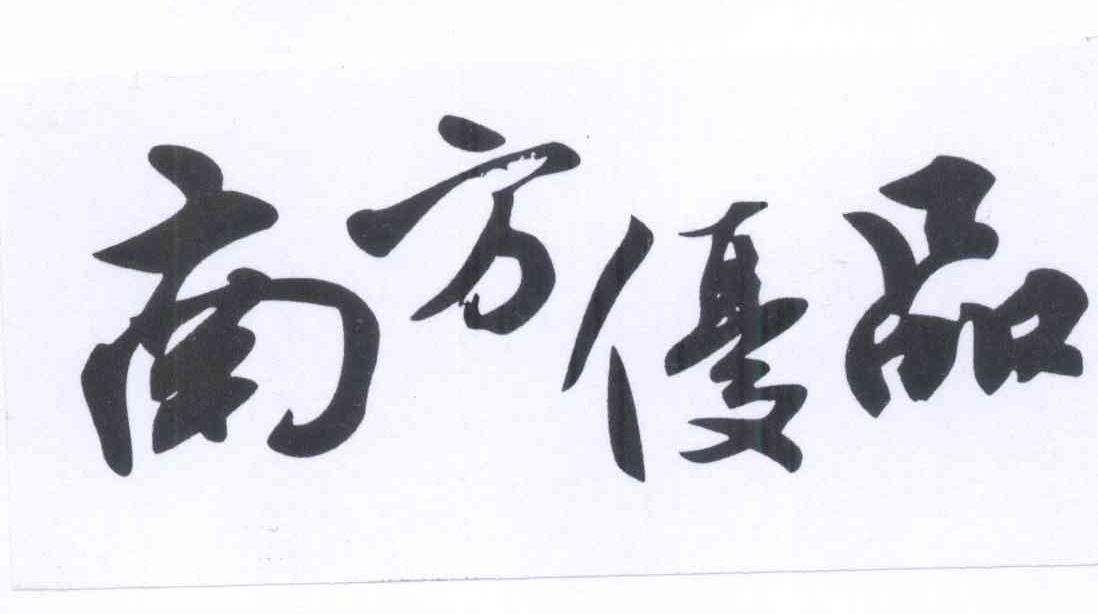 南方優品